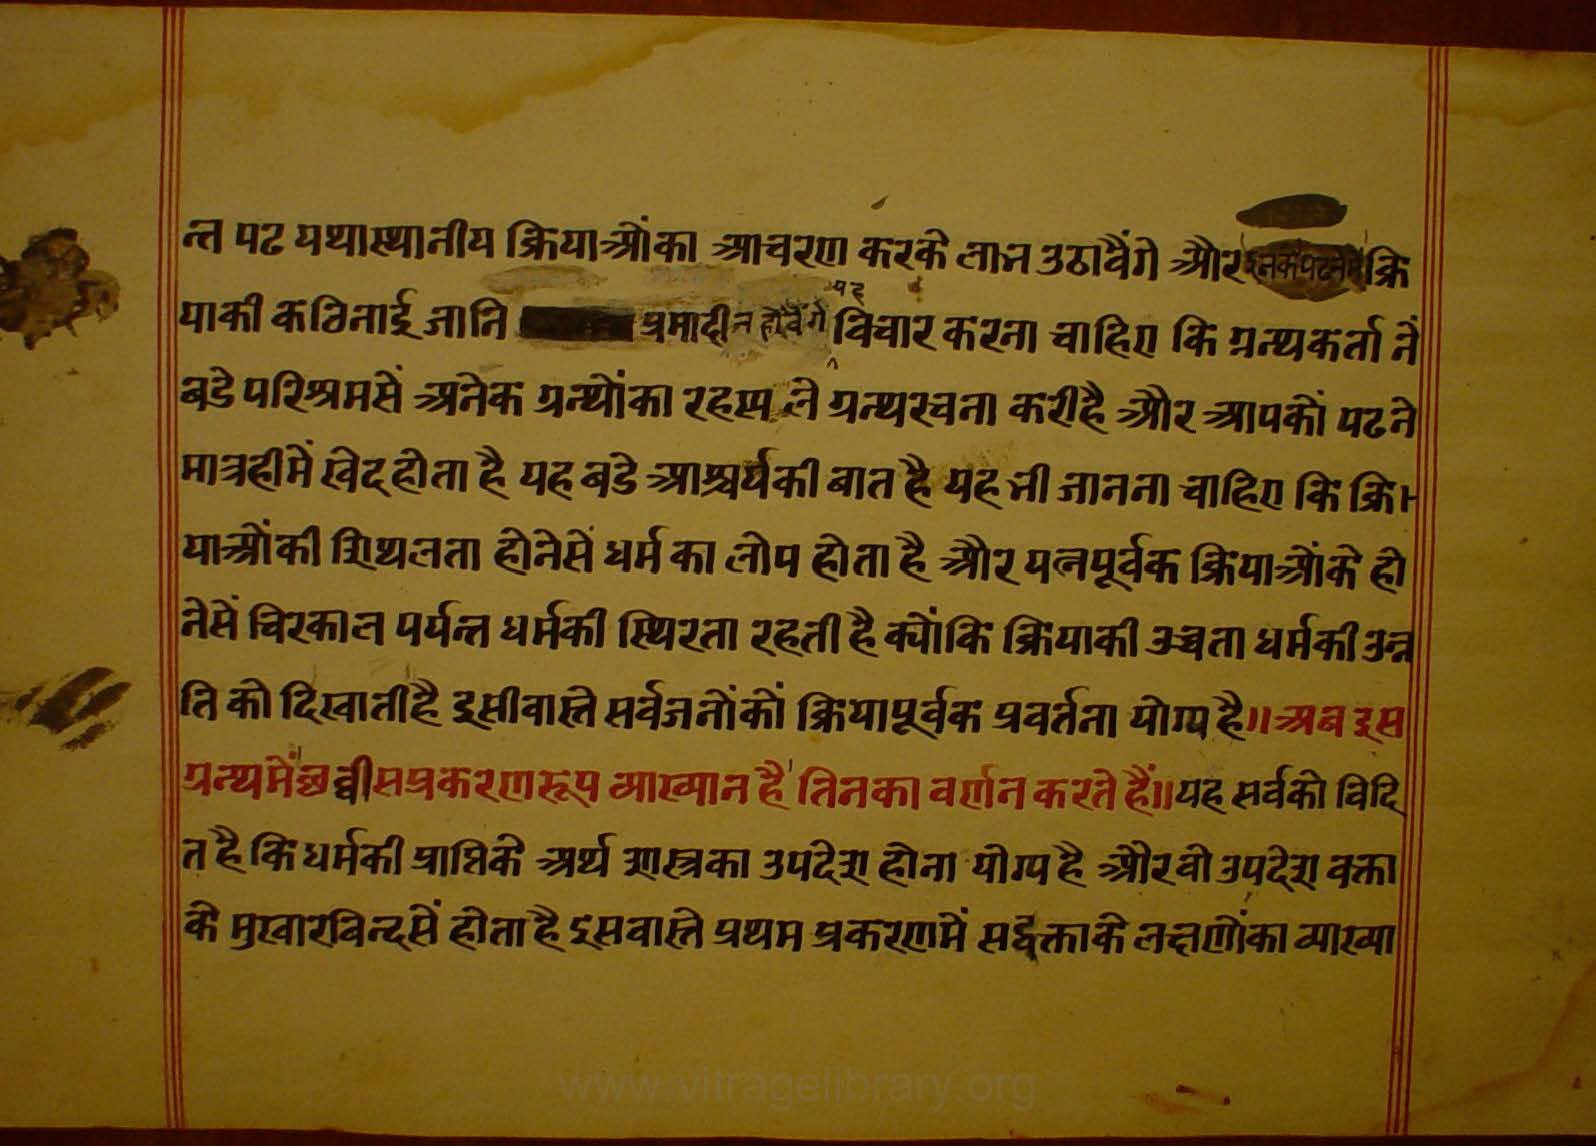 न्त पढ यथास्थानीय क्रियाओंका आचरण करके लाभ उठावैंगे और क्रि
याकी कठिनाई जानि प्रमादी न होवैंगे यह विचार करना चाहिए कि ग्रन्थकर्ता नें
बडे परिश्रमसें अनेक ग्रन्थोंका रहस्य ले ग्रन्थरचना करीहै और आपकों पढने
मात्रहीमें खेद होता है यह बडे आश्चर्यकी बात है यह भी जानना चाहिए कि क्रि
याओंकी शिथलता होनेसें धर्म का लोप होता है और यत्नपूर्वक क्रियाओंके हो
नेसें चिरकाल पर्यन्त धर्मकी स्थिरता रहती है क्योंकि क्रियाकी उच्चता धर्मकी उन्न
ति को दिखातीहै इसीवास्ते सर्वजनोंकों क्रियापूर्वक प्रवर्तना योग्य है॥ अब इस
ग्रन्थमेंछब्बीसप्रकरणरूप व्याख्यान है तिनका वर्णन करते हैं॥ यह सर्वको विदि
त है कि धर्मकी प्राप्तिके अर्थ शास्त्रका उपदेश होना योग्य है और वो उपदेश वक्ता
के मुखारविन्दसें होता है इसवास्ते प्रथम प्रकरणमें सद्वक्ताके लक्षणोंका व्याख्या
www.vitragelibrary.org